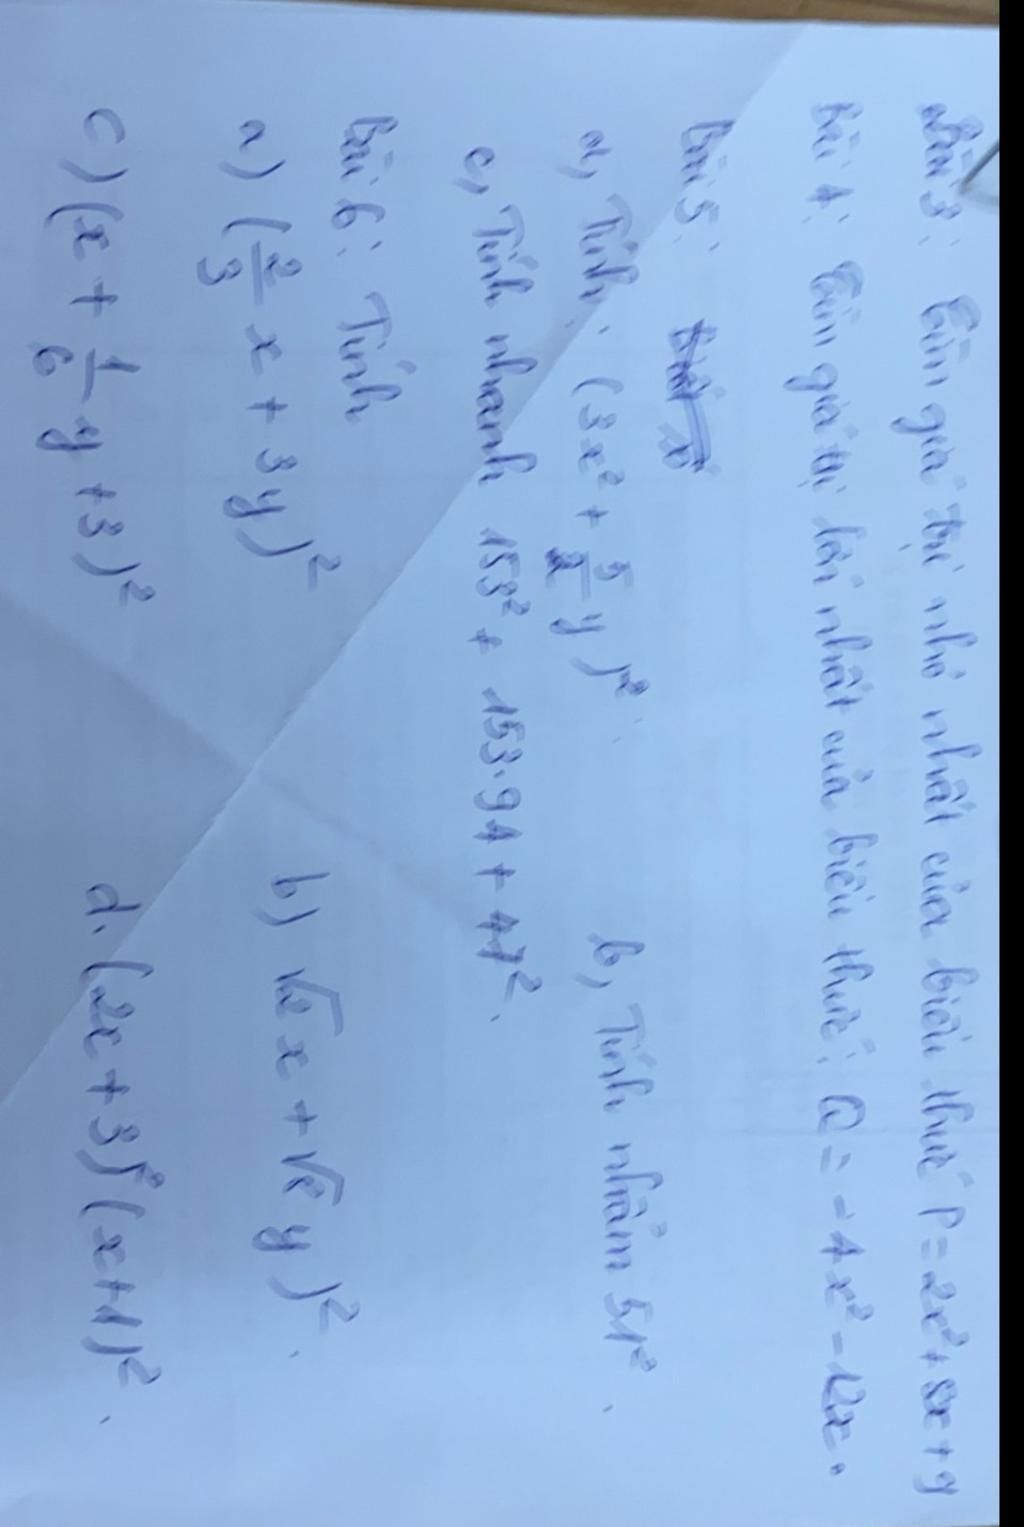 Bài 3: Tìm giá trị nhỏ nhất của biểu thức P = 2x² + 8x + 9
Bài 4: Tìm giá trị lớn nhất của biểu thức: Q = -4x² - 12x.
Bài 5:
a, Tính: (3x² + 5/2 y)². b, Tính nhẩm 51².
c, Tính nhanh 153² + 153.94 + 47².
Bài 6: Tính
a) (2/3 x + 3y)² b) √2 x + √ y)².
c) (x + 1/6 y + 3)² d. (2x + 3)² (x+1)².